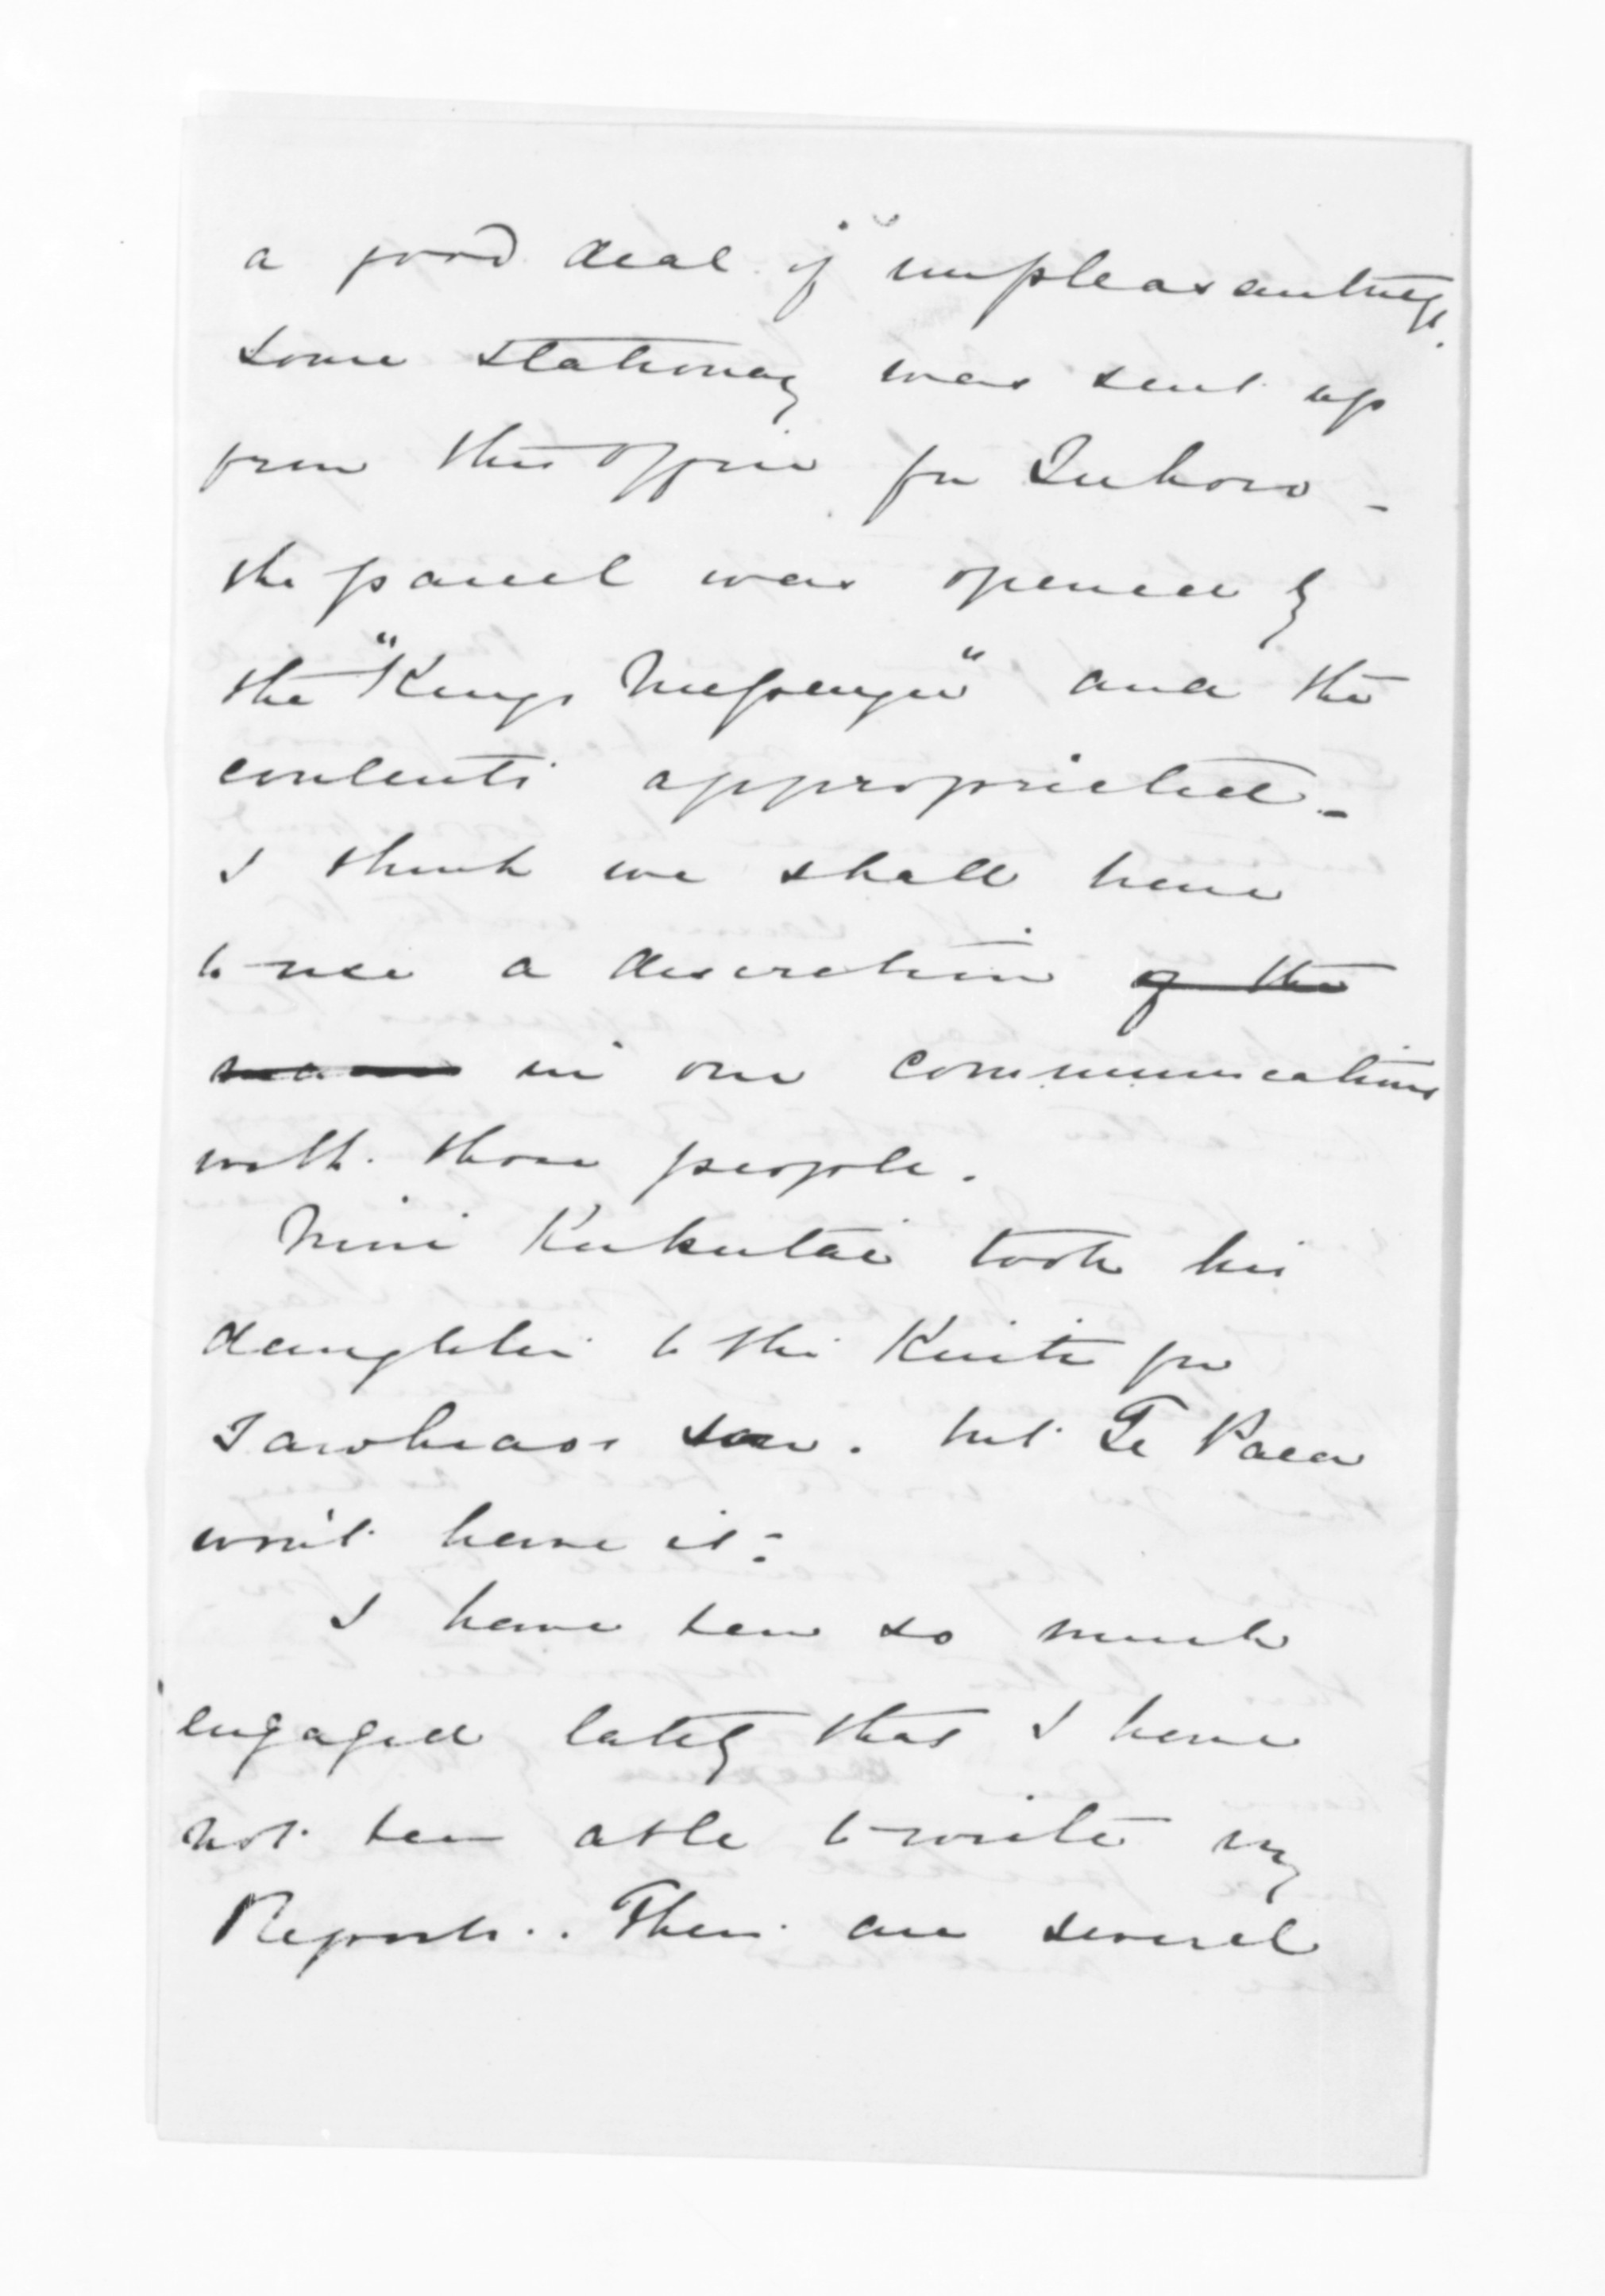 a good deal of unpleasantness.
some stationery was sent up
from this office for Tuhoro -
the parcel was opened by
the "Kings Messenger" and the
contents appropriated -
I think we shall have
to use a discretion of the
in our communications
with those people.
Nini Kukutai took his
daughter to the Kuiti for
Tawhiaos son. but Te Paea
won't have it:
I have been so much
engaged lately that I have
not been able to write my
Reports.. There are several